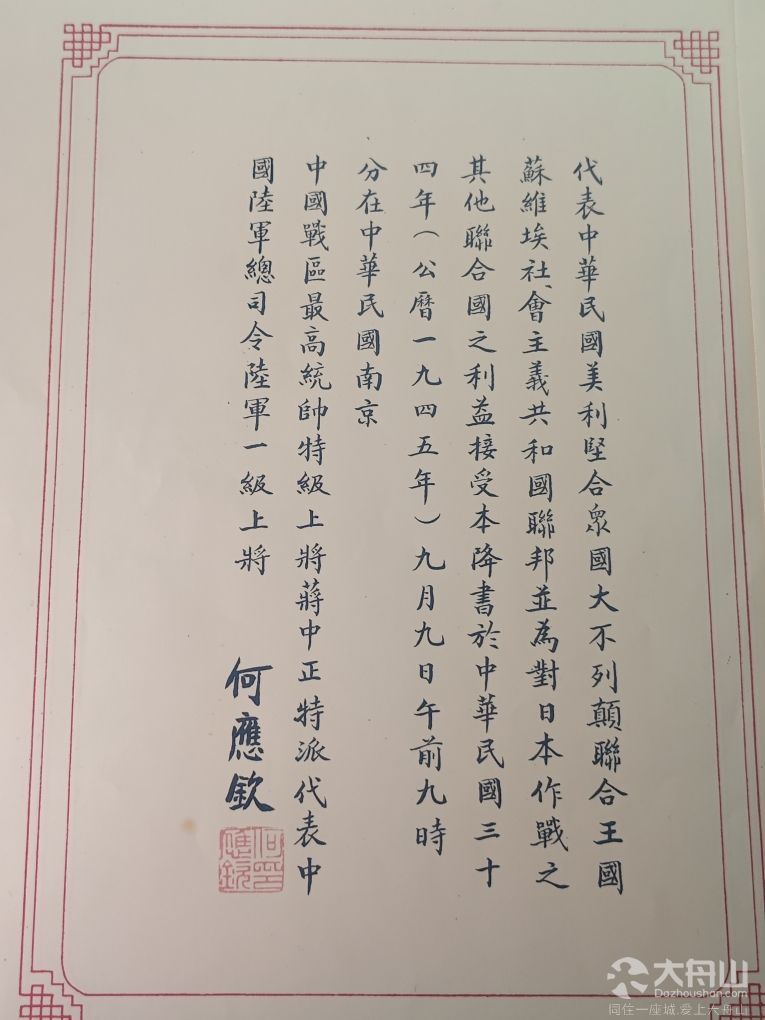 代表中華民國美利堅合眾國大不列顛聯合王國
蘇維埃社會主義共和國聯邦並為對日本作戰之
其他聯合國之利益接受本降書於中華民國三十
四年（公曆一九四五年）九月九日午前九時
分在中華民國南京
中國戰區最高統帥特級上將蔣中正特派代表中
國陸軍總司令陸軍一級上將
何應欽
何應欽印
大舟山
Dazhoushan.com
同住一座城,爱上大舟山